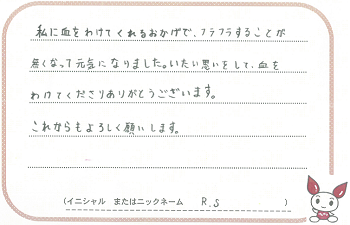 私に血をわけてくれるおかげで、フラフラすることが
無くなって元気になりました。いたい思いをして、血を
わけてくださりありがとうございます。
これからもよろしく願いします。
(イニシャル またはニックネーム R.S )